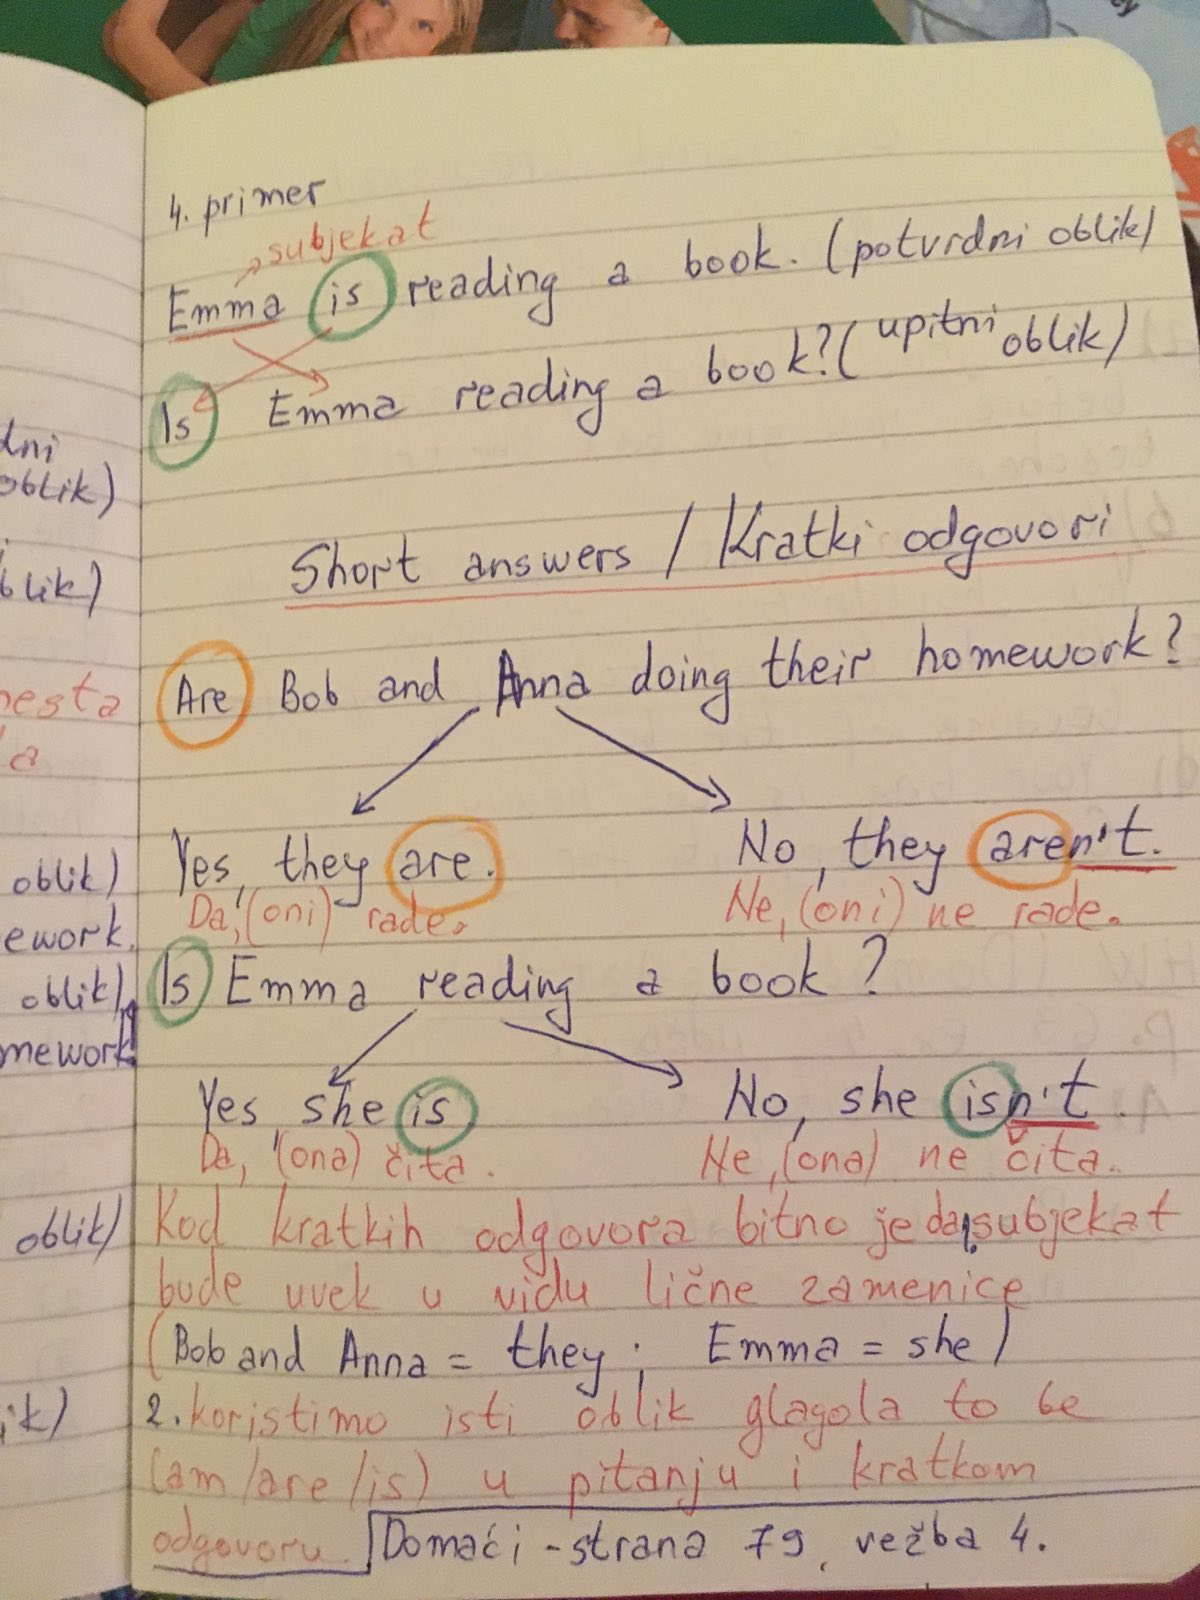 4. primer
subjekat
Emma is reading a book. (potvrdni oblik)
Is Emma reading a book? (upitni oblik)
Short answers / Kratki odgovori
Are Bob and Anna doing their homework?
Yes, they are. No, they aren't.
Da, (oni) rade. Ne, (oni) ne rade.
Is Emma reading a book?
Yes she is No, she isn't.
Da, (ona) čita. Ne, (ona) ne čita.
Kod kratkih odgovora bitno je da subjekat
bude uvek u vidu lične zamenice
(Bob and Anna = they ; Emma = she)
2. koristimo isti oblik glagola to be
(am/are/is) u pitanju i kratkom
odgovoru. Domaći - strana 79, vežba 4.
dni
oblik)
blik)
mesta
oblik)
ework.
oblik)
mework
oblik)
ik)